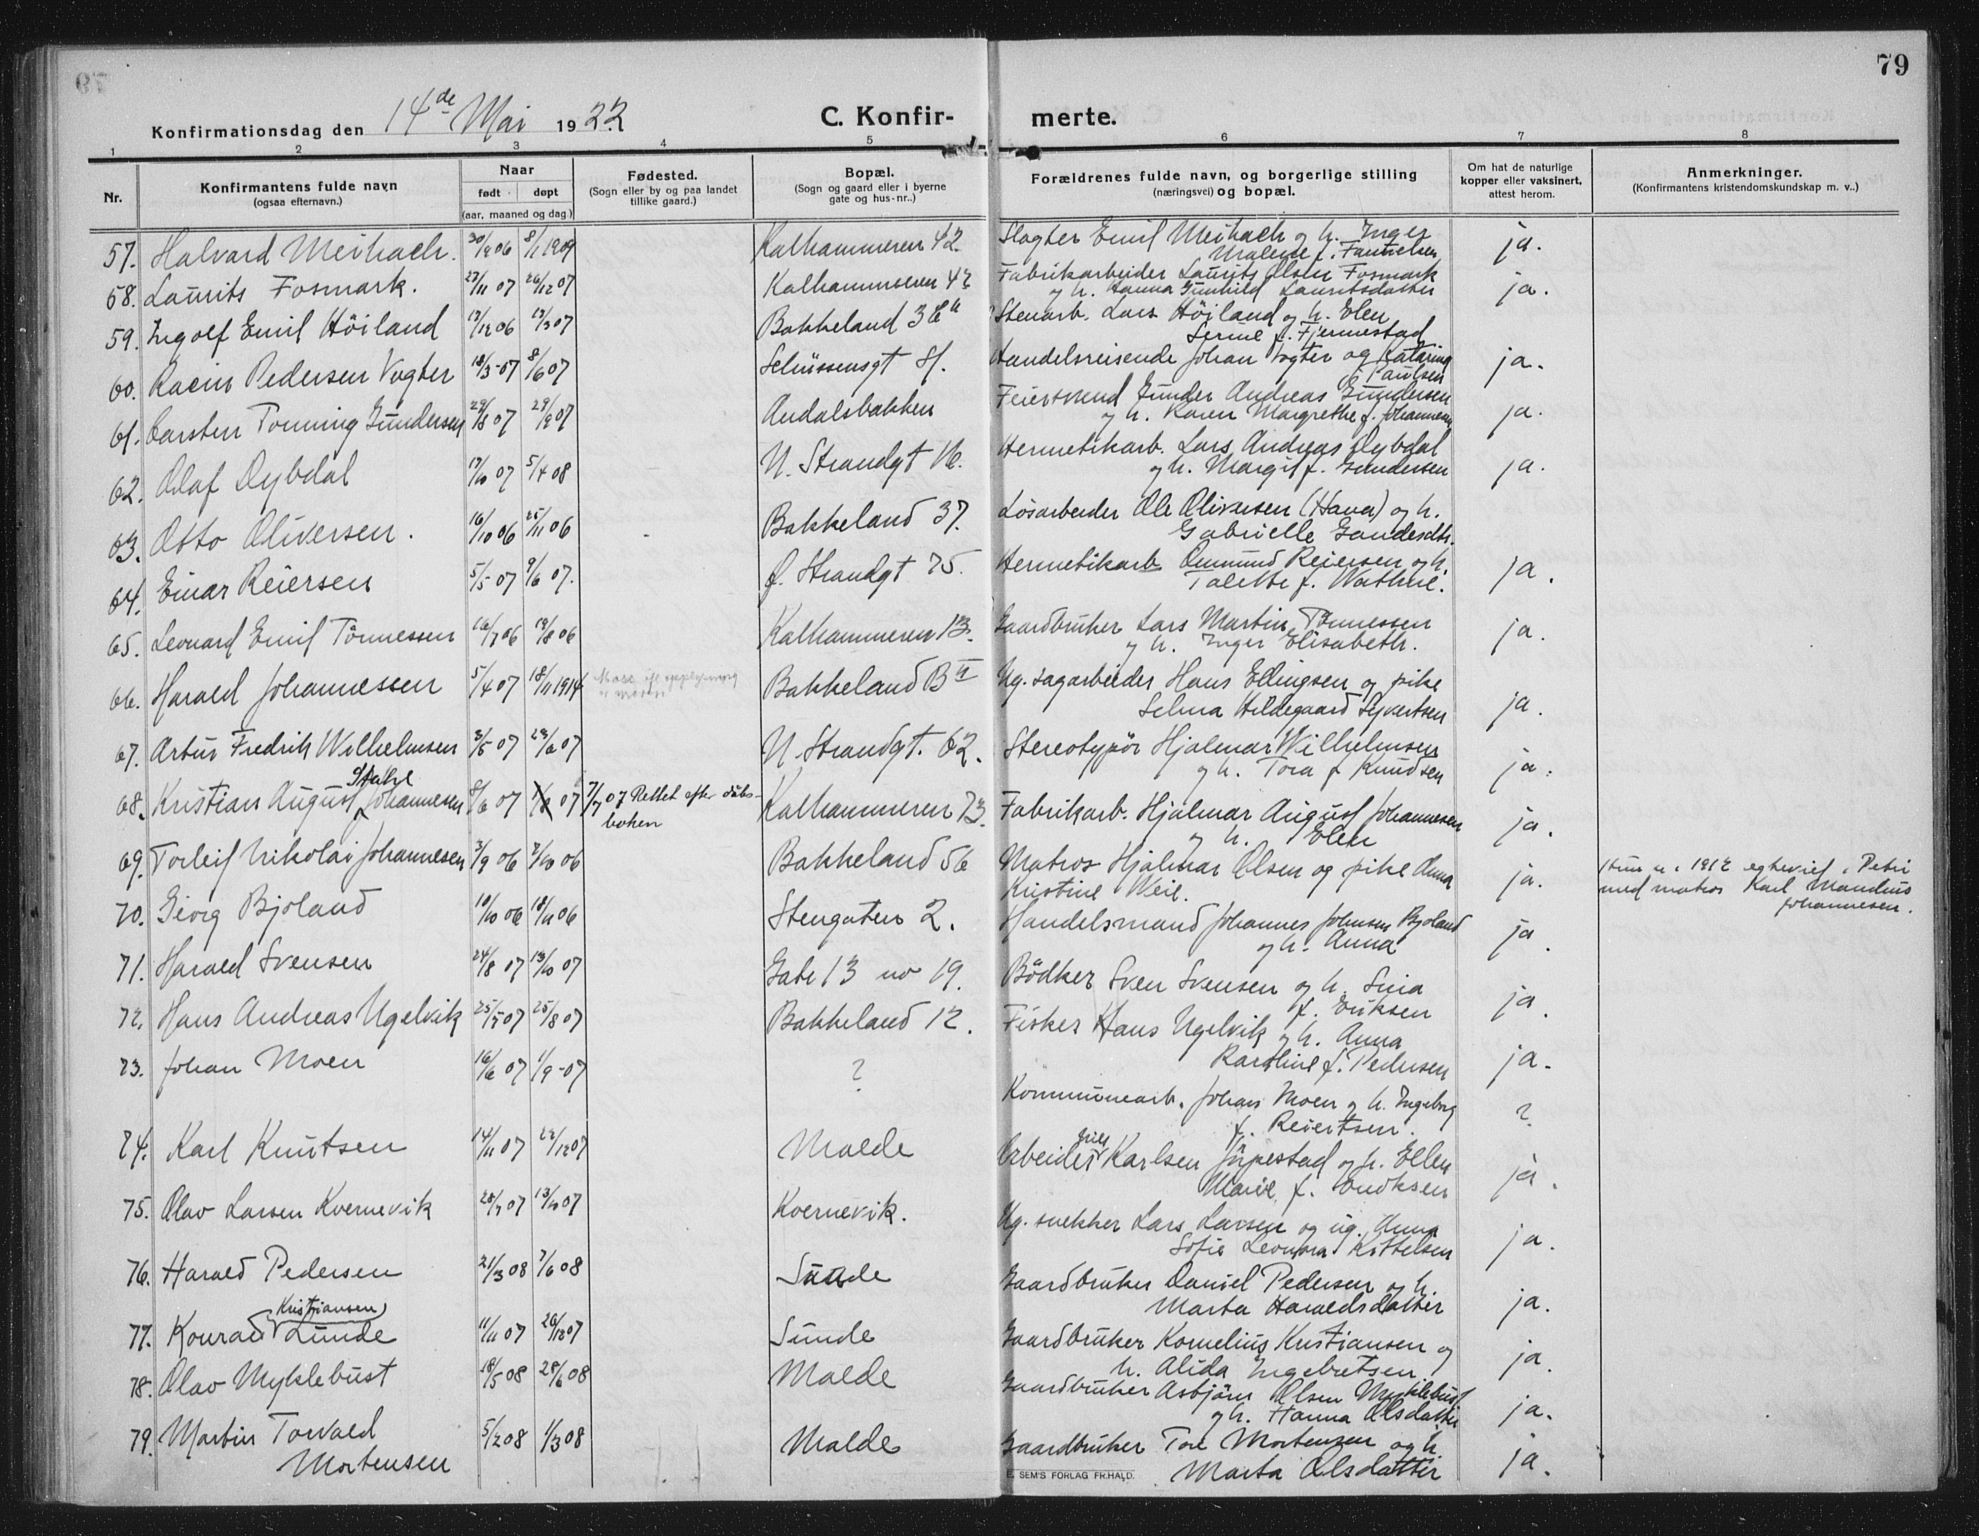 79
Konfirmationsdag den 14de Mai 1922. C. Konfirmerte.
1 2 3 4 5 6 7 8
Nr. Konfirmantens fulde navn (ogsaa efternavn.) Naar født døpt (aar, maaned og dag.) Fødested. (Sogn eller by og paa landet tillike gaard.) Bopæl. (Sogn og gaard eller i byerne gate og hus-nr..) Forældrenes fulde navn, og borgerlige stilling (næringsvei) og bopæl. Om hat de naturlige kopper eller vaksinert, attest herom. Anmerkninger. (Konfirmantens kristendomskundskap m. v..)
57. Halvard Meihach. 30/9 06 8/1 1909 Kalhammeren 42 Slagter Emil Meihach og h. Inger ja.
Malene f.
58. Laurits Fosmark. 27/11 07 26/12 07 Kalhammeren 42 Fabrikarbeider Laurits Olsen Fosmark
og h. Hanna Gunhild Lauritsdatter ja.
59. Ingolf Emil Höiland 13/12 06 13/3 07 Bakkeland Stenarb. Lars Höiland og h. Elen
Serine f. Fjermestad
60. Pedersen Vogter 18/3-07 8/6 07 Handelsreisende Johan Vogter og Katarina ja.
f. Paulsen
61. Carsten Tonning Gundersen 29/8 07 29/9 07 Andalsbakken Feiersvend Gunder Andreas Gundersen
og h. Karen Margrethe f. Johannesen ja.
62. Olaf Dybdal 19/10 07 5/4 08 N. Strandgt 16. Hermetikarb. Lars Andreas Dybdal
og h. Margit f. Gundersen ja.
63. Otto Oliversen. 16/10 06 25/11 06 Bakkeland 37. Løsarbeider Ole Oliversen (Hana) og h.
Gabrielle
64. Einar Reiersen 5/5 07 9/6 07. Ø. Strandgt 75. Hermetikarb Omund Reiersen og h. ja.
Talette f. Wathne.
65. Leonard Emil Tönnessen 16/7 06 19/8 06 Kalhammeren 13. Gaardbruker Lars Martin Tönnessen ja.
og h. Inger Elisabeth.
66. Harald Johannessen 5/4 07 18/11 1914 Bakkeland B Ug. sagarbeider Hans Ellingsen og pike
Selma Hildegaard Syvertsen ja.
67. Artur Fredrik Wilhelmsen 3/5 07 23/6 07 N. Strandgt. 62. Stereotypör Hjalmar Wilhelmsen
og h. Tora f Knudsen ja.
Stahl
68. Kristian August Johannesen 8/6 07 07 7/7 07 Rettet efter dåbs- Kalhammeren 73. Fabrikarb. Hjalmar August Johannesen
boken og h. Elen ja.
69. Torleif Nikolai Johannesen 3/9 06 7/10 06 Bakkeland 56 Matros Hjalmar Olsen og pike Anna ja. Hun er i 1912 egteviet i Petri
Kristine Weie. med matros Karl Mandius
Johannesen.
70. Georg Bjoland 10/10 06 18/11 06 Stengaten 2. Handelsmand Johannes Johnsen Bjoland ja.
og h. Anna
71. Harald Svensen 24/8 07 13/10 07 Gate 13 no 19. Bödker Sven Svensen og h. Sina
f. Eriksen ja.
72. Hans Andreas Ugelvik 25/7 07 25/8 07 Bakkeland 12. Fisker Hans Ugelvik og h. Anna
Karoline f. Pedersen ja.
73. Johan Moen 16/6 07 1/9-07 ? Kommunearb. Johan Moen og h. Ingeborg ?
f. Reiertsen.
74. Karl Knutsen 14/11 07 22/12 07 Malde Arbeider Karlsen og h. Ellen
Marie f. ja.
75. Olav Larsen Kvernevik 28/7 07 13/10 07 Kvernevik. Ug. snekker Lars Larsen og ug. Anna
Sofie Leonora Kittelsen ja.
76. Harald Pedersen 21/3 08 7/6 08 Sunde Gaardbruker Daniel Pedersen og h.
Marta Haraldsdatter ja.
Kristiansen
77. Konrad Sunde 11/11 07 26/12 07 Sunde Gaardbruker Kornelius Kristiansen og
h. Alida Ingebretsen ja.
78. Olav Myklebust 18/5 08 28/6 08 Malde Gaardbruker Asbjörn Olsen Myklebust
og h. Hanna Olsdatter ja.
79. Martin Torvald 5/2 08 1/3 08 Malde Gaardbruker Tore Mortensen og h.
Mortensen Marta Olsdatter ja.
E. SEM'S FORLAG FR.HALD.